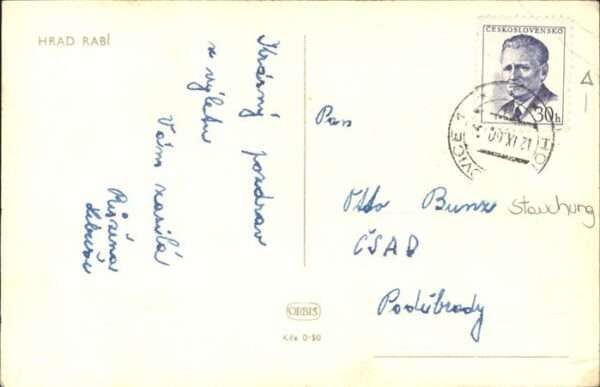 HRAD RABÍ
Krásný pozdrav
z výletu
Vám zasílá
Růžena
Libuše
ČESKOSLOVENSKO
30h
12.IX.60
VICE 1
Pan
Otto Bunze
Stauchung
ČSAD
Poděbrady
ORBIS
Kčs 0·50